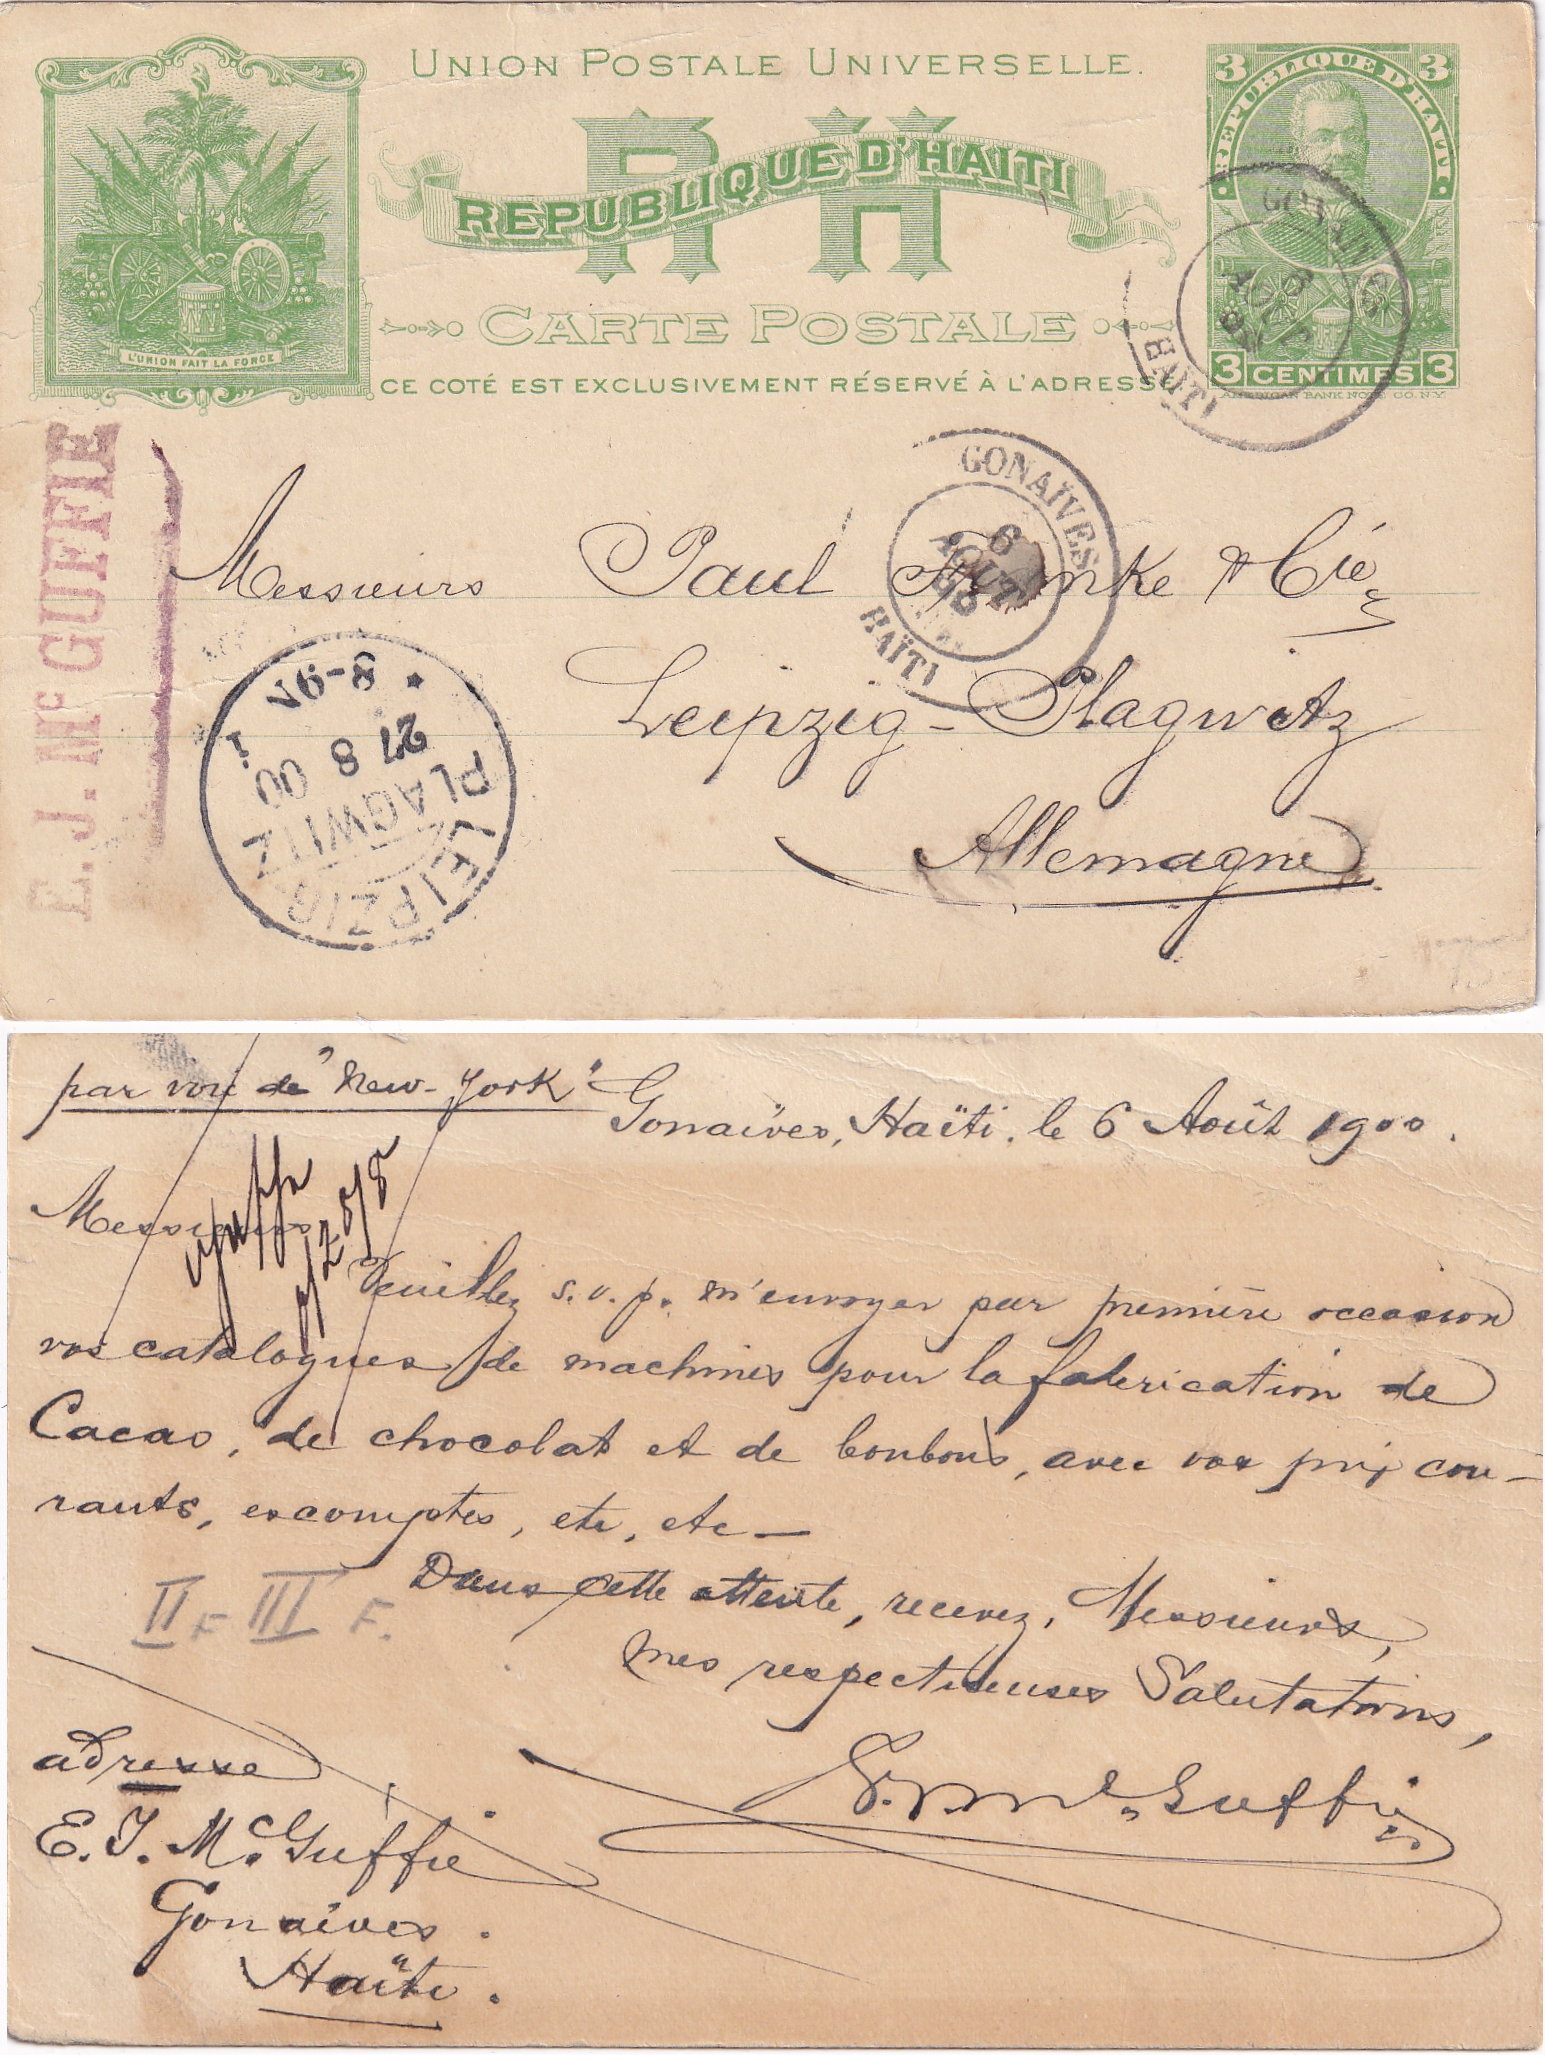 UNION POSTALE UNIVERSELLE.
RH
REPUBLIQUE D'HAITI
CARTE POSTALE
CE COTÉ EST EXCLUSIVEMENT RÉSERVÉ À L'ADRESSE
L'UNION FAIT LA FORCE
3 3
REPUBLIQUE D'HAITI
3 CENTIMES 3
AMERICAN BANK NOTE CO. N.Y.
GONAIVES
6
AOUT
HAÏTI
GONAÏVES
6
AOUT
HAÏTI
E. J. Mc GUFFIE
Messieurs Paul & Cie
Leipzig-Plagwitz
Allemagne
LEIPZIG
PLAGWITZ
27 8 00
8-9N
par voie de "New-York"
Gonaïves, Haïti, le 6 Août 1900.
Messieurs
Veuillez s.v.p. m'envoyer par première occasion
vos catalogues de machines pour la fabrication de
Cacao, de chocolat et de bonbons, avec vos prix cou-
rants, escomptes, etc, etc —
Dans cette attente, recevez, Messieurs,
mes respectueuses Salutations,
II F III F.
Mc Guffie
adresse
E. J. Mc Guffie
Gonaives.
Haïti.